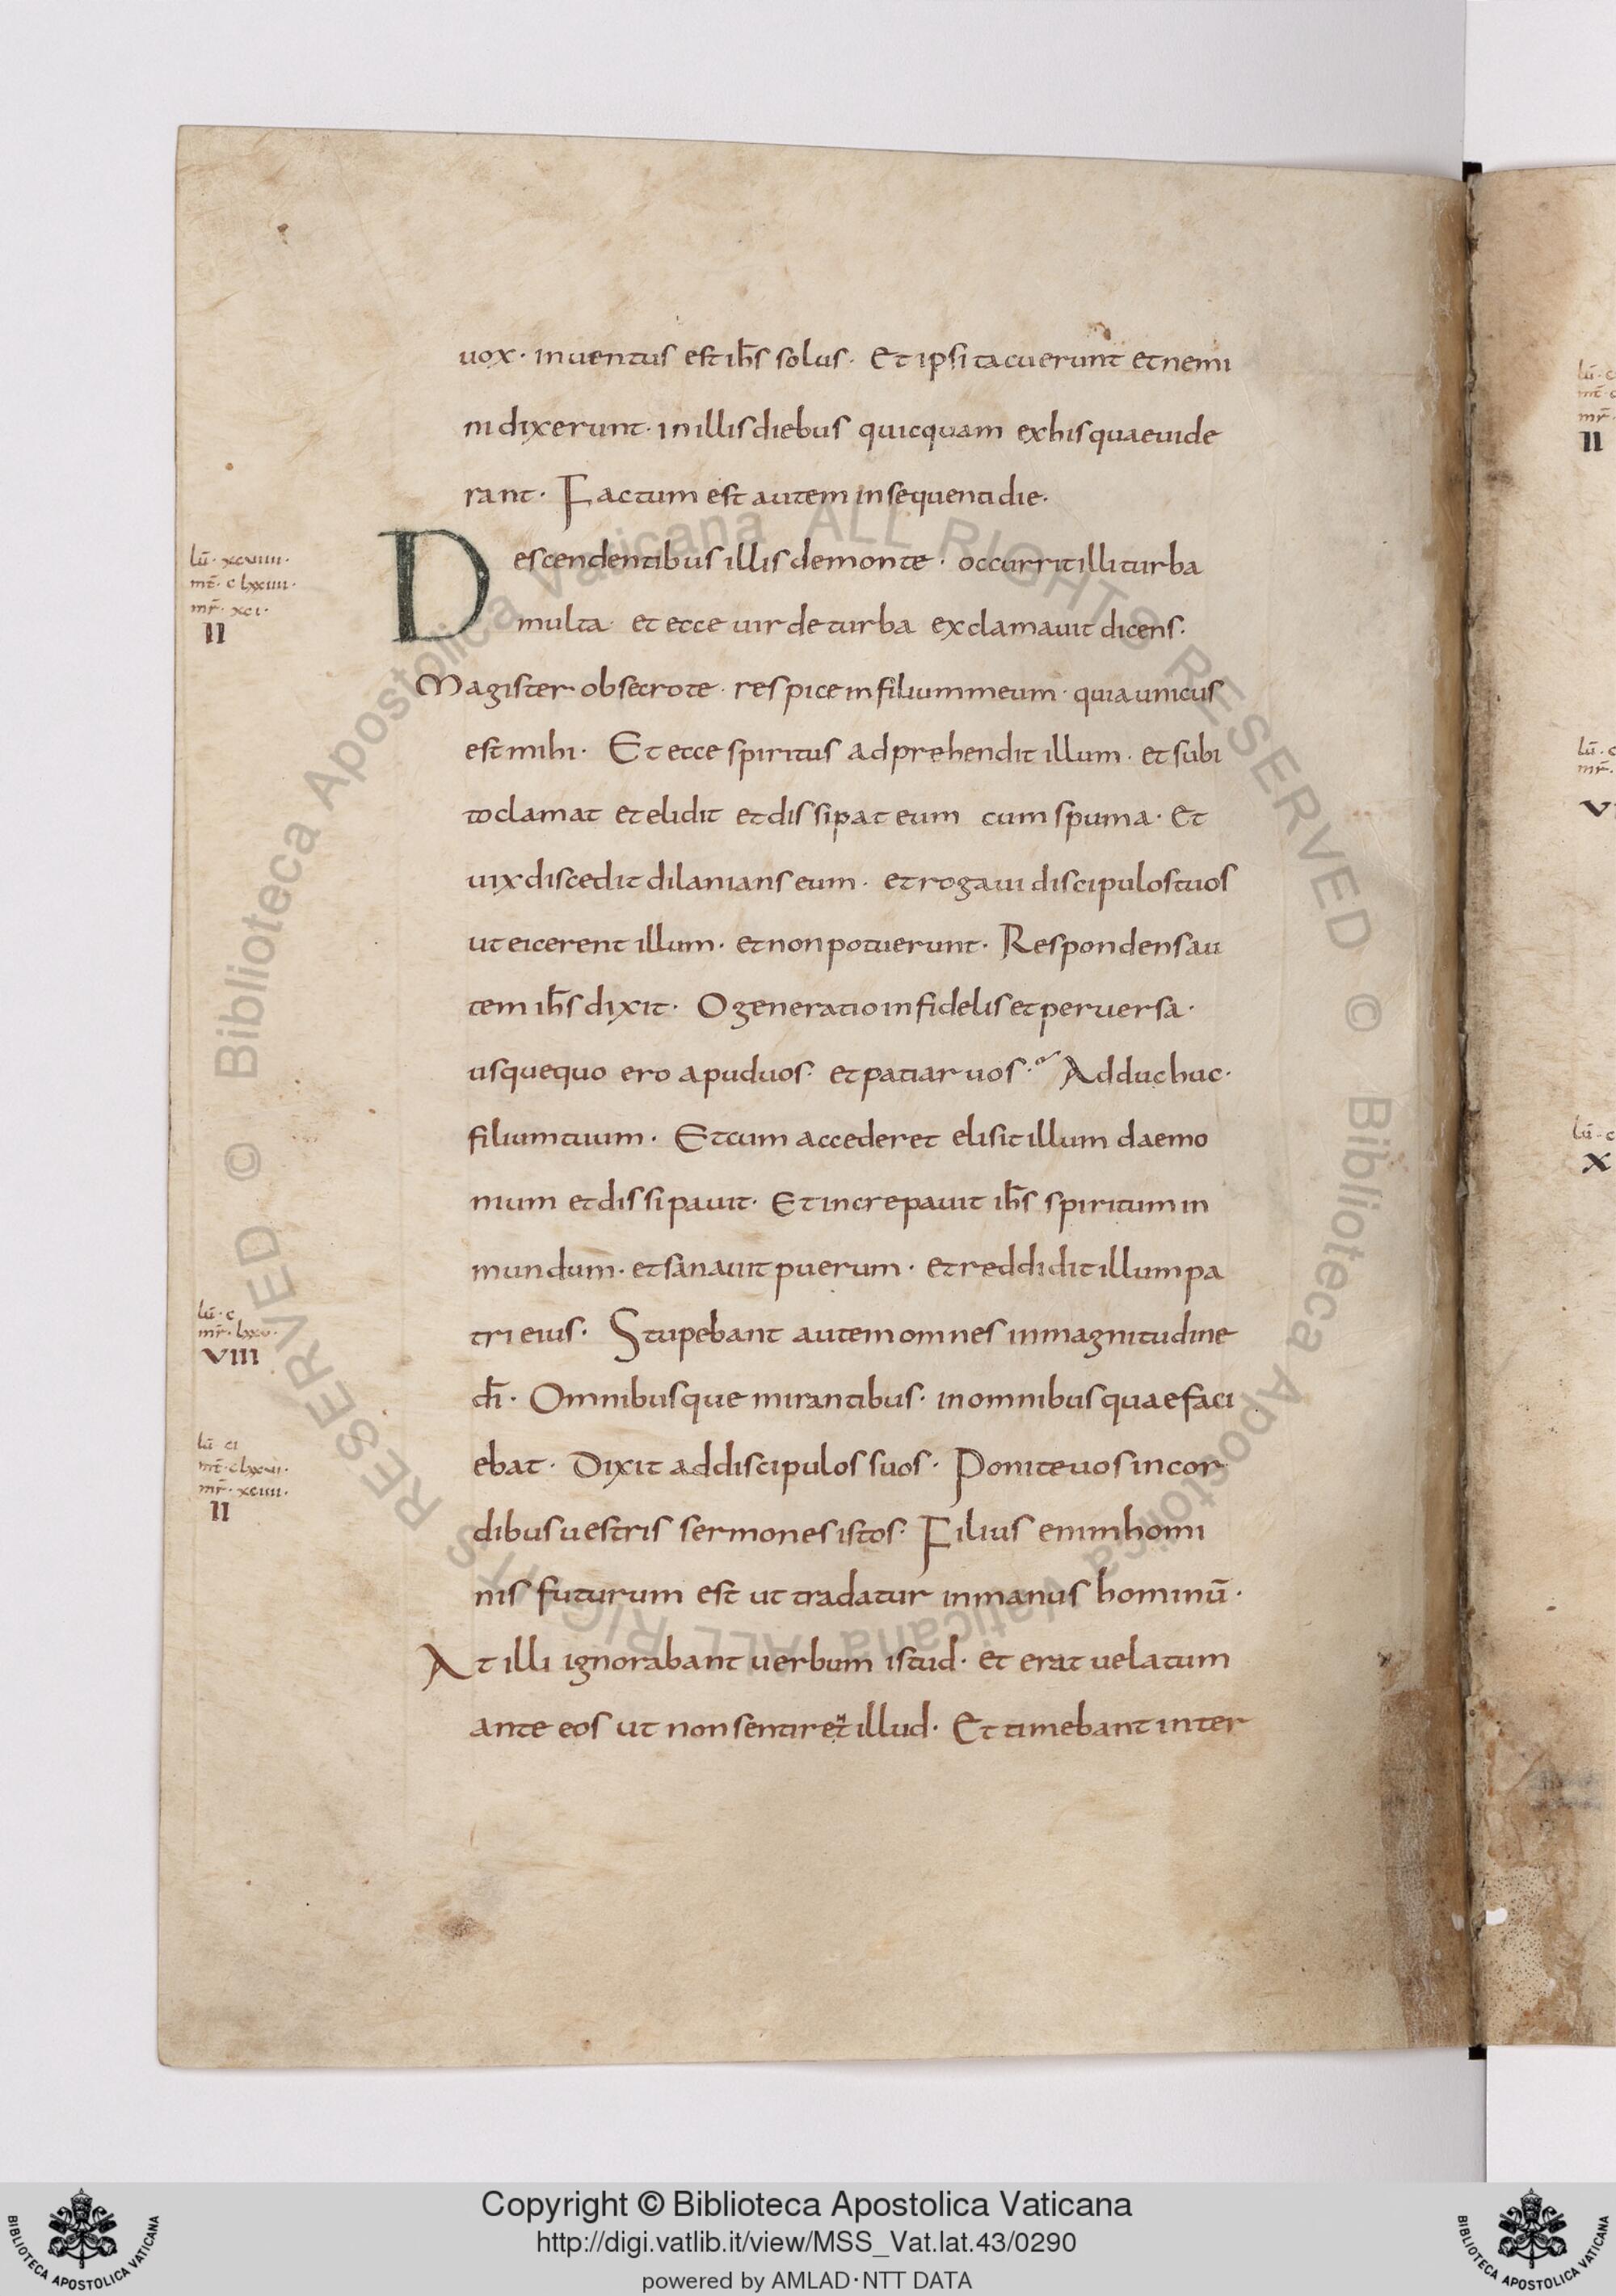 uox · inuentus est ih̄s solus · Et ipsi tacuerunt et nemi
ni dixerunt · in illis diebus quicquam ex his quae uide
rant · Factum est autem in sequenti die ·
lū · xcviiii ·
mt̄ · clxxiiii ·
mr̄ · xci ·
II
Descendentibus illis de monte · occurrit illi turba
multa · et ecce uir de turba exclamauit dicens ·
Magister obsecro te · respice in filium meum · quia unicus
est mihi · Et ecce spiritus adprehendit illum · et subi
to clamat et elidit et dissipat eum cum spuma · Et
uix discedit dilanians eum · et rogaui discipulos tuos
ut eicerent illum · et non potuerunt · Respondens au
tem ih̄s dixit · O generatio infidelis et peruersa ·
usquequo ero apud uos · et patiar uos · Adduc huc ·
filium tuum · Et cum accederet elisit illum daemo
nium et dissipauit · Et increpauit ih̄s spiritum in
mundum · et sanauit puerum · et reddidit illum pa
lū · c
mr̄ · lxxv ·
VIII
tri eius · Stupebant autem omnes in magnitudine
dī · Omnibusque mirantibus · in omnibus quae faci
lū · ci
mr̄ · xciiii ·
II
ebat · Dixit ad discipulos suos · Ponite uos in cor
dibus uestris sermones istos · Filius enim homi
nis futurum est ut tradatur in manus hominū ·
At illi ignorabant uerbum istud · et erat uelatum
ante eos ut non sentirent illud · Et timebant inter
lū · c
II
lū · c
mr̄ ·
lū · c
X
© Biblioteca Apostolica Vaticana ALL RIGHTS RESERVED
© Biblioteca Apostolica Vaticana ALL RIGHTS RESERVED
BIBLIOTECA APOSTOLICA VATICANA
Copyright © Biblioteca Apostolica Vaticana
http://digi.vatlib.it/view/MSS_Vat.lat.43/0290
powered by AMLAD·NTT DATA
BIBLIOTECA APOSTOLICA VATICANA